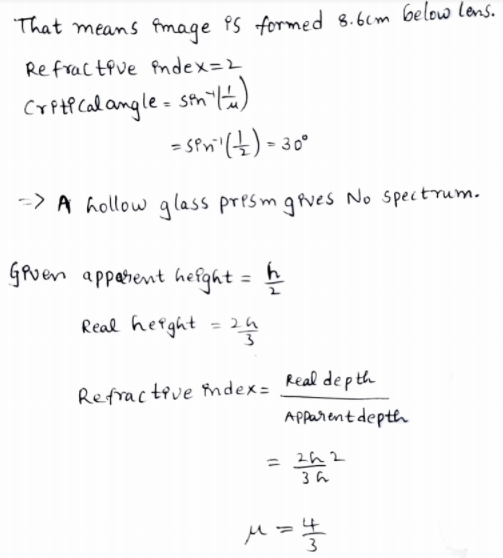 That means image is formed 8.6cm below lens.
Refractive index=2
Critical angle = sin⁻¹(1/μ)
= sin⁻¹(1/2) = 30°
=> A hollow glass prism gives No spectrum.
Given apparent height = h/2
Real height = 2h/3
Refractive index = Real depth / Apparent depth
= 2h 2 / 3h
μ = 4/3